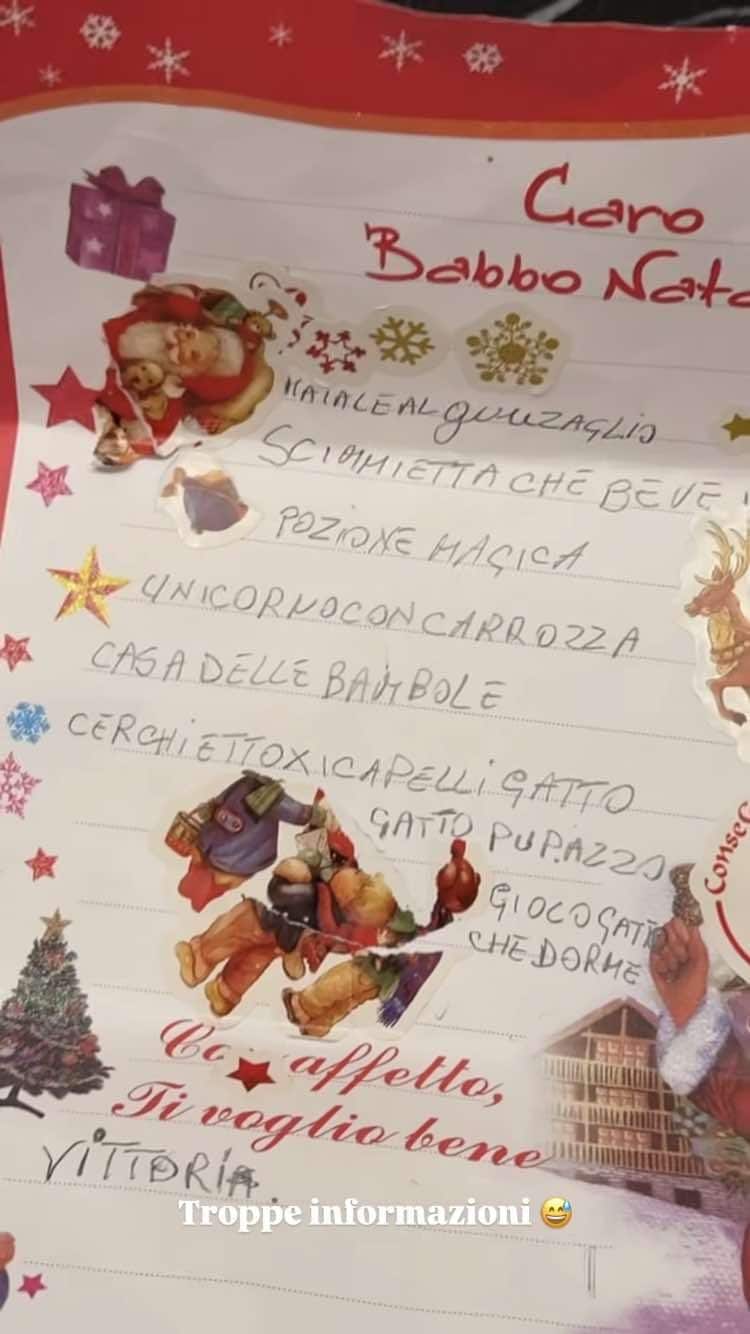 Caro
Babbo Nata
MAIALE AL GUINZAGLIO
SCIMMIETTA CHE BEVE
POZIONE MAGICA
UNICORNO CON CARROZZA
CASA DELLE BAMBOLE
CERCHIETTO X I CAPELLI GATTO
GATTO PUPAZZO
GIOCO GATTO
CHE DORME
Consec
Co affetto,
Ti voglio bene
VITTORIA
Troppe informazioni 😅